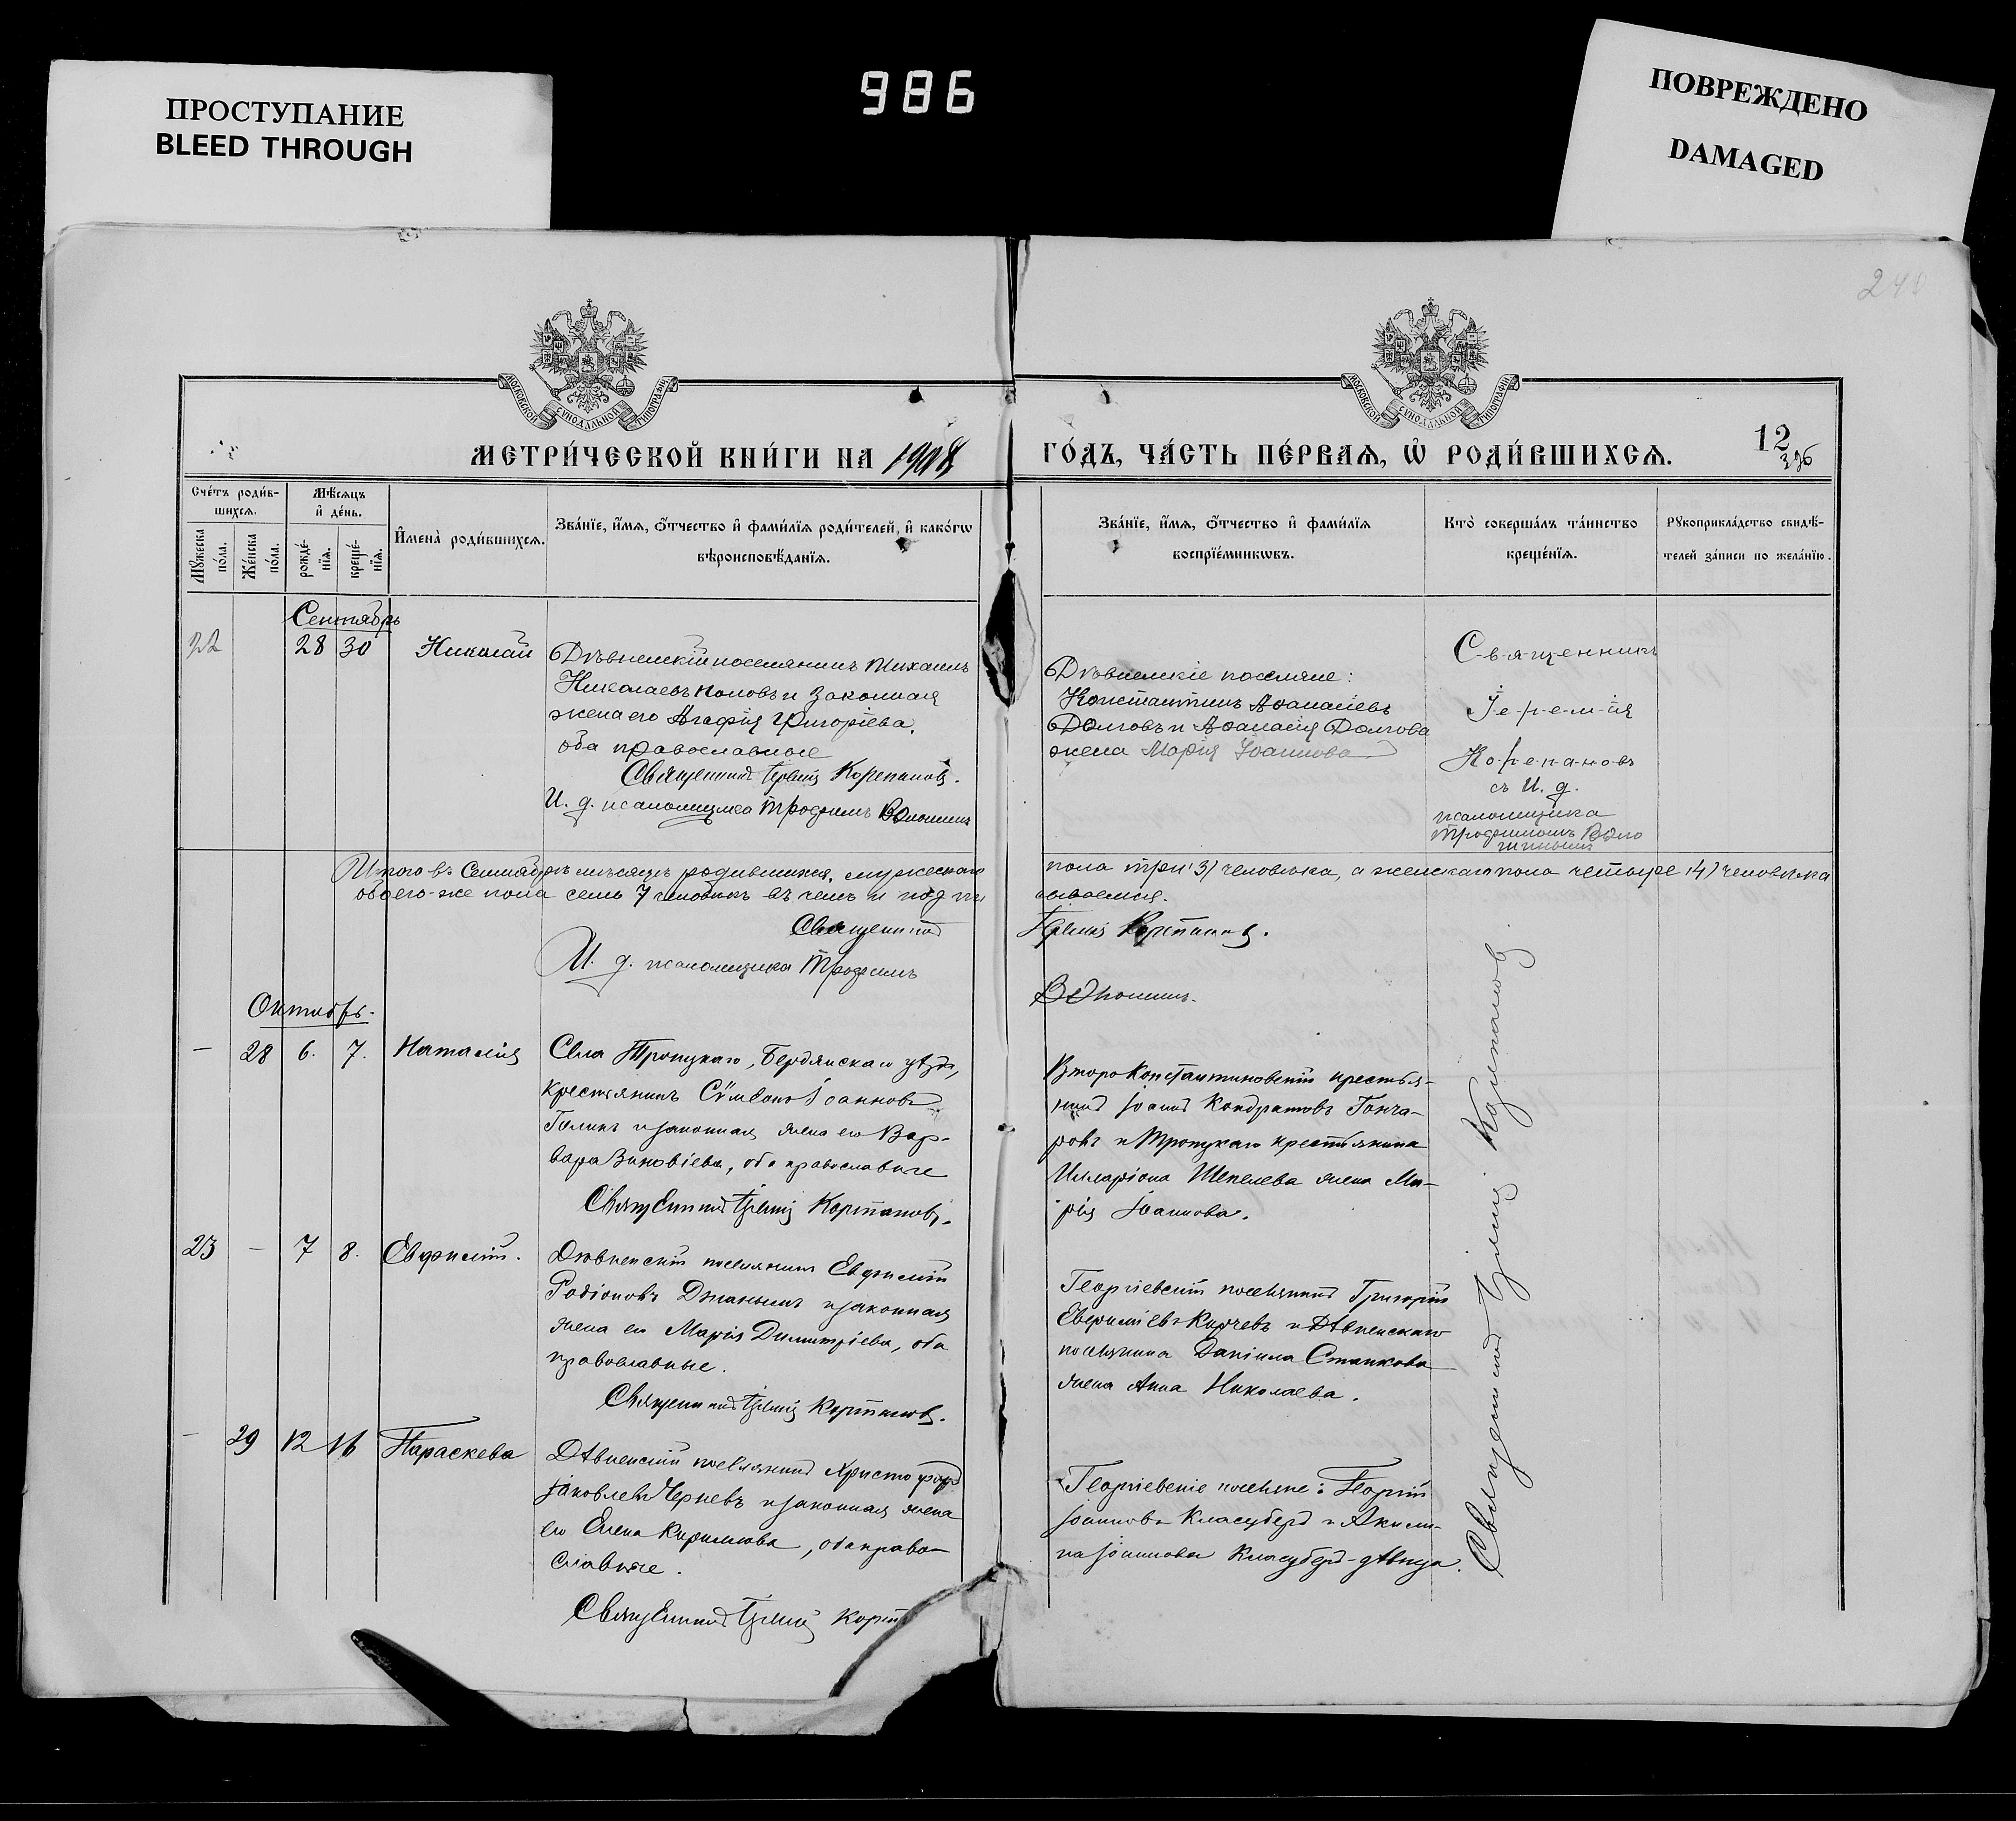 ПРОСТУПАНИЕ
BLEED THROUGH
986
ПОВРЕЖДЕНО
DAMAGED
МОСКОВСКОЙ СѴНОДАЛЬНОЙ ТИПОГРАФІИ
МОСКОВСКОЙ СѴНОДАЛЬНОЙ ТИПОГРАФІИ
МЕТРИ́ЧЕСКОЙ КНИ́ГИ НА 1908
ГО́ДЪ, ЧА́СТЬ ПЕ́РВАѦ, Ѡ РОДИ́ВШИХСѦ.
12
326
Сче́тъ роди́в-
шихсѧ.
Мѣ́сѧцъ
и҆ де́нь.
И҆мена̀ роди́вшихсѧ.
Зва́нїе, и҆́мѧ, ѻ҆́тчество и҆ фами́лїѧ роди́телей, и҆ како́гѡ
вѣроисповѣ́данїѧ.
Мꙋ́жеска
по́ла.
Же́нска
по́ла.
рожде́-
нїѧ.
креще́-
нїѧ.
Зва́нїе, и҆́мѧ, ѻ҆́тчество и҆ фами́лїѧ
воспрїе́мникѡвъ.
Кто̀ соверша́лъ та́инство
креще́нїѧ.
Рꙋкоприкла́дство свидѣ́-
телей за́писи по жела́нїю.
Сентябрь
22
28 30
Николай
Дѣвненскій поселянинъ Михаилъ
Николаевъ Поповъ и законная
жена его Агафія Григоріева,
оба православные
Священникъ Іеремія Корепановъ.
И. д. псаломщика Трофимъ
Дѣвненскіе поселяне:
Константинъ Аѳанасіевъ
Долговъ и Аѳанасія Долгова
жена Марія Іоаннова
Священникъ
Іеремія
Корепановъ
съ И. д.
псаломщика
Трофимомъ
Итого въ Сентябрѣ мѣсяцѣ родившихся, мужескаго
пола три (3) человѣка, а женскаго пола четыре (4) человѣка
обоего-же пола семь 7 человѣкъ въ чемъ и подпи
сываемся.
Священникъ
Іеремія Корепановъ.
И. д. псаломщика Трофимъ
Октябрь.
— 28 6. 7. Наталія
Села Троицкаго, Бердянскаго уѣзда,
крестьянинъ Сѵмеонъ Іоанновъ
Голикъ и законная жена его Вар-
вара Зиновіева, оба православные
Священникъ Іеремія Корепановъ.
Второконстантиновскій крестья-
нинъ Іоаннъ Кондратовъ Гонча-
ровъ и Троицкаго крестьянина
Илларіона Шепелева жена Ма-
рія Іоаннова.
23 — 7 8. Евфимій.
Дѣвненскій поселянинъ Евфимій
Родіоновъ Джанымъ и законная
жена его Марія Димитріева, оба
православные.
Священникъ Іеремія Корепановъ.
Георгіевскій поселянинъ Григорій
Евфиміевъ Кирчевъ и Дѣвненскаго
поселянина Даніила Станкова
жена Анна Николаева.
— 29 12 16 Параскева
Дѣвненскій поселянинъ Христофоръ
Іаковлевъ Черневъ и законная жена
его Елена Кириллова, оба право-
славные.
Священникъ Іеремія Кореп
Георгіевскіе поселяне: Георгій
Іоанновъ и Акили-
на Іоаннова дѣвица.
Священникъ Іеремія Корепановъ